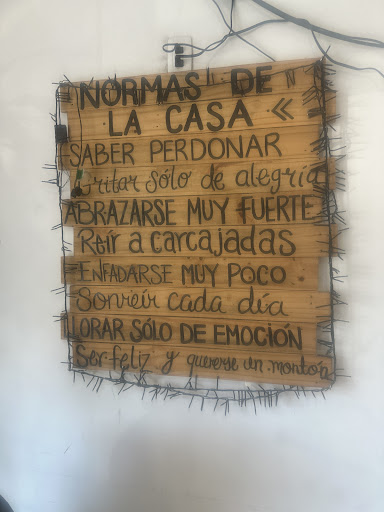 "NORMAS DE
LA CASA «
SABER PERDONAR
Gritar sólo de alegría
ABRAZARSE MUY FUERTE
Reír a carcajadas
ENFADARSE MUY POCO
Sonreír cada día
LLORAR SÓLO DE EMOCIÓN
Ser feliz y quererse un montón